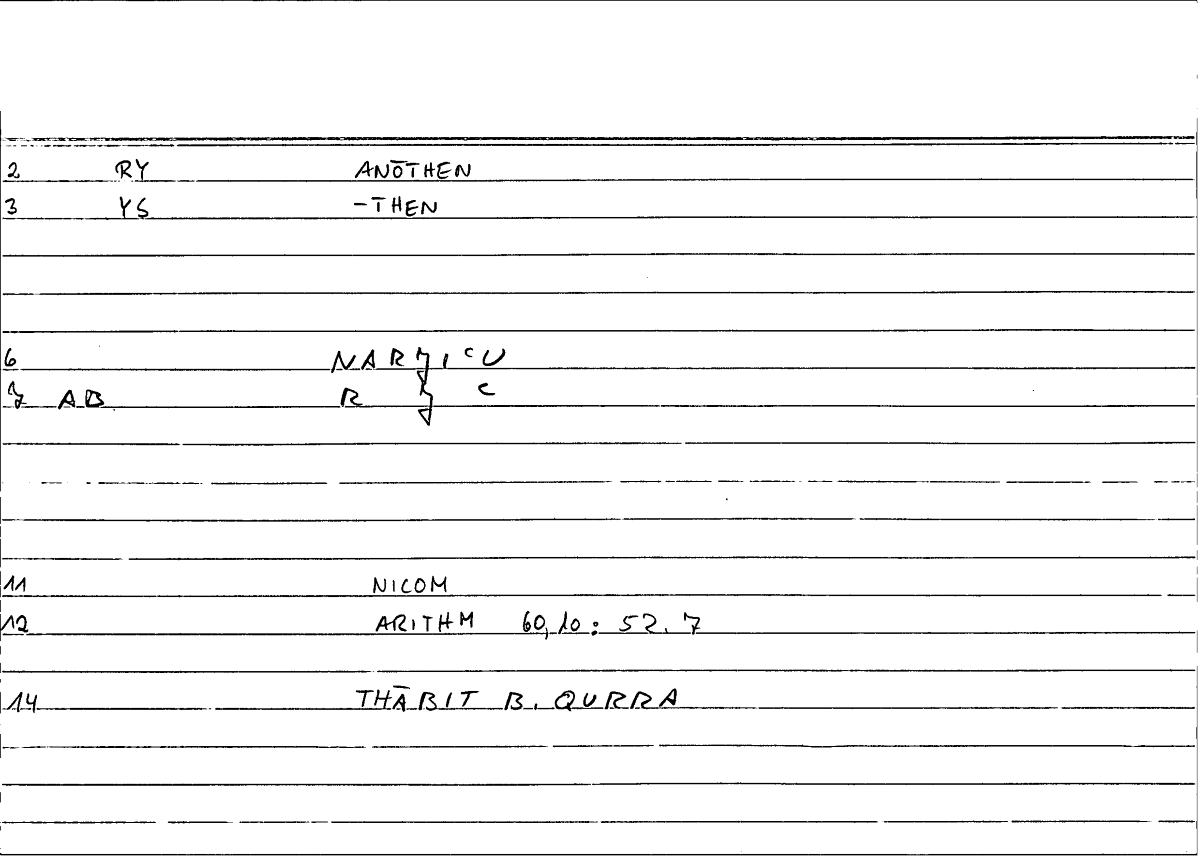 2 RY ANŌTHEN
3 YS -THEN
6
7 AB R C
11 NICOM
12 ARITHM 60,10: 52.7
14 THĀBIT B. QURRA